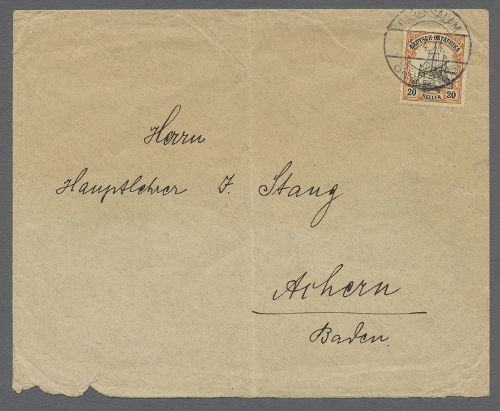 DARESSALAM
DEUTSCH-OSTAFRIKA
20 20
HELLER
Herrn
Hauptlehrer J. Stang
Achern
Baden.